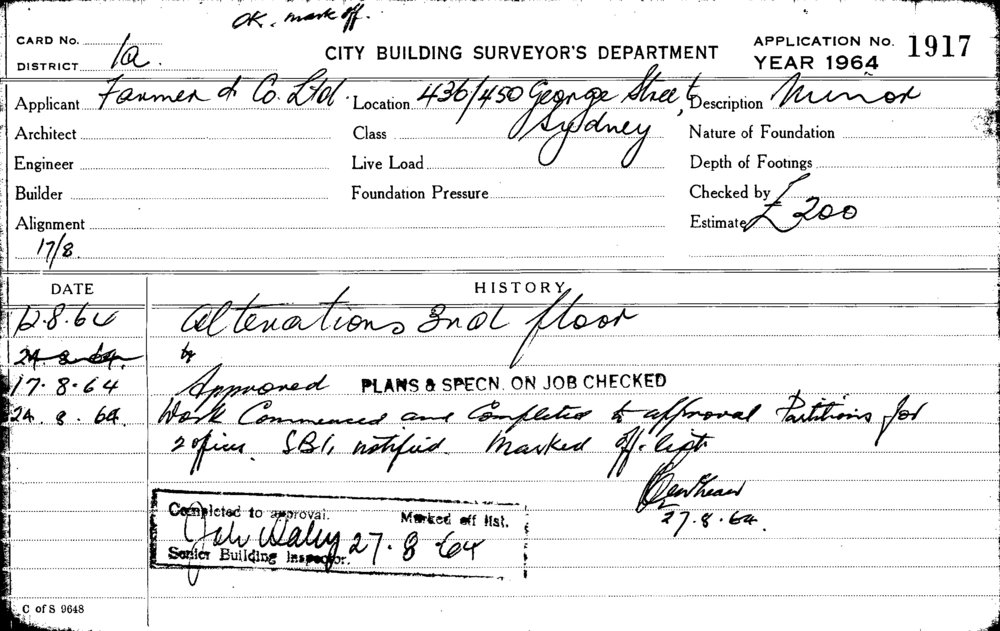 OK. mark off.
CARD No.
DISTRICT 1a.
CITY BUILDING SURVEYOR'S DEPARTMENT
APPLICATION No. 1917
YEAR 1964
Applicant Farmer & Co. Ltd. Location 436/450 George Street, Description Minor
Architect Class Sydney Nature of Foundation
Engineer Live Load Depth of Footings
Builder Foundation Pressure Checked by
Alignment Estimate £200
17/8.
DATE HISTORY
12.8.64 Alterations 3rd floor
24.8.64. by
17.8.64 Approved PLANS & SPECN. ON JOB CHECKED
24.8.64. Work Commenced and Completed to approval Partitions for
2 offices. SBI, notified. Marked off list
27.8.64.
Completed to approval. Marked off list.
27.8.64
Senior Building Inspector.
C of S 9648